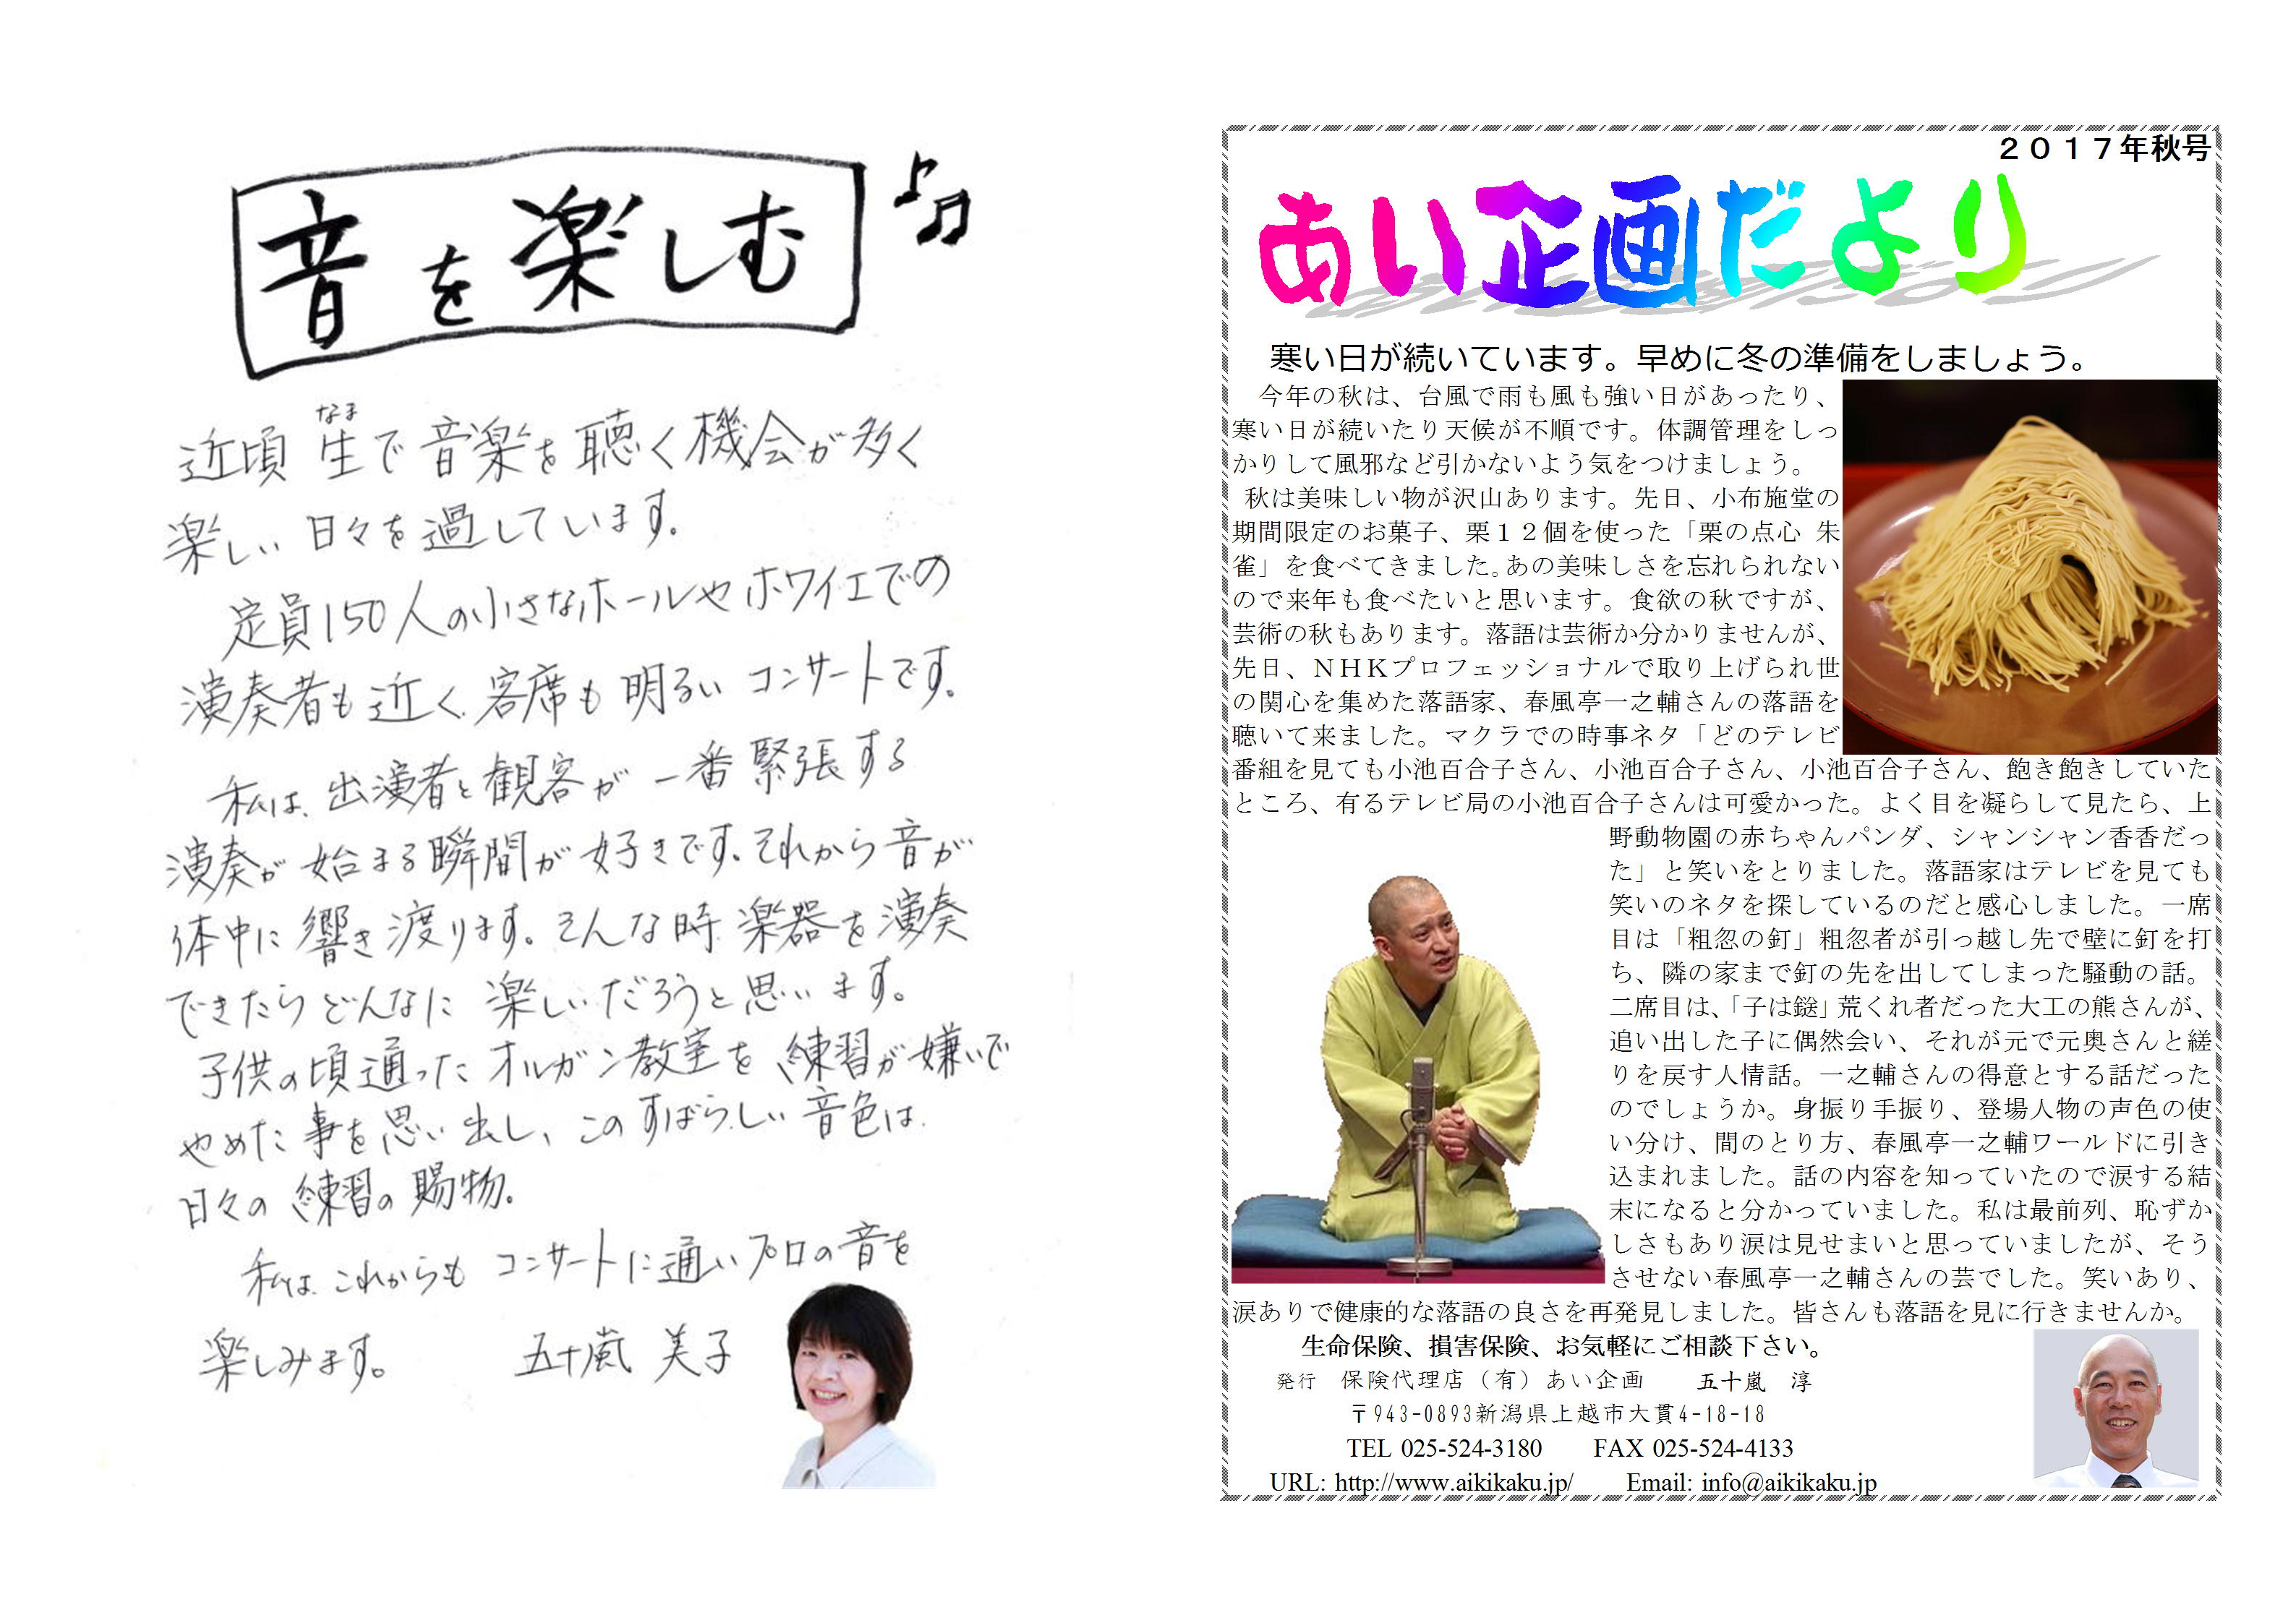 音を楽しむ
近頃 生で音楽を聴く機会が多く
なま
楽しい日々を過しています。
定員150人の小さなホールやホワイエでの
演奏者も近く客席も明るいコンサートです。
私は、出演者と観客が一番緊張する
演奏が始まる瞬間が好きです。それから音が
体中に響き渡ります。そんな時楽器を演奏
できたらどんなに楽しいだろうと思います。
子供の頃通ったオルガン教室を練習が嫌いで
やめた事を思い出し、このすばらしい音色は
日々の練習の賜物。
私は、これからもコンサートに通いプロの音を
楽しみます。 五十嵐 美子
2017年秋号
あい企画だより
寒い日が続いています。早めに冬の準備をしましょう。
今年の秋は、台風で雨も風も強い日があったり、
寒い日が続いたり天候が不順です。体調管理をしっ
かりして風邪など引かないよう気をつけましょう。
秋は美味しい物が沢山あります。先日、小布施堂の
期間限定のお菓子、栗12個を使った「栗の点心 朱
雀」を食べてきました。あの美味しさを忘れられない
ので来年も食べたいと思います。食欲の秋ですが、
芸術の秋もあります。落語は芸術か分かりませんが、
先日、NHKプロフェッショナルで取り上げられ世
の関心を集めた落語家、春風亭一之輔さんの落語を
聴いて来ました。マクラでの時事ネタ「どのテレビ
番組を見ても小池百合子さん、小池百合子さん、小池百合子さん、飽き飽きしていた
ところ、有るテレビ局の小池百合子さんは可愛かった。よく目を凝らして見たら、上
野動物園の赤ちゃんパンダ、シャンシャン香香だっ
た」と笑いをとりました。落語家はテレビを見ても
笑いのネタを探しているのだと感心しました。一席
目は「粗忽の釘」粗忽者が引っ越し先で壁に釘を打
ち、隣の家まで釘の先を出してしまった騒動の話。
二席目は、「子は鎹」荒くれ者だった大工の熊さんが、
追い出した子に偶然会い、それが元で元奥さんと縒
りを戻す人情話。一之輔さんの得意とする話だった
のでしょうか。身振り手振り、登場人物の声色の使
い分け、間のとり方、春風亭一之輔ワールドに引き
込まれました。話の内容を知っていたので涙する結
末になると分かっていました。私は最前列、恥ずか
しさもあり涙は見せまいと思っていましたが、そう
させない春風亭一之輔さんの芸でした。笑いあり、
涙ありで健康的な落語の良さを再発見しました。皆さんも落語を見に行きませんか。
生命保険、損害保険、お気軽にご相談下さい。
発行 保険代理店（有）あい企画 五十嵐 淳
〒943-0893新潟県上越市大貫4-18-18
TEL 025-524-3180 FAX 025-524-4133
URL: http://www.aikikaku.jp/ Email: info@aikikaku.jp